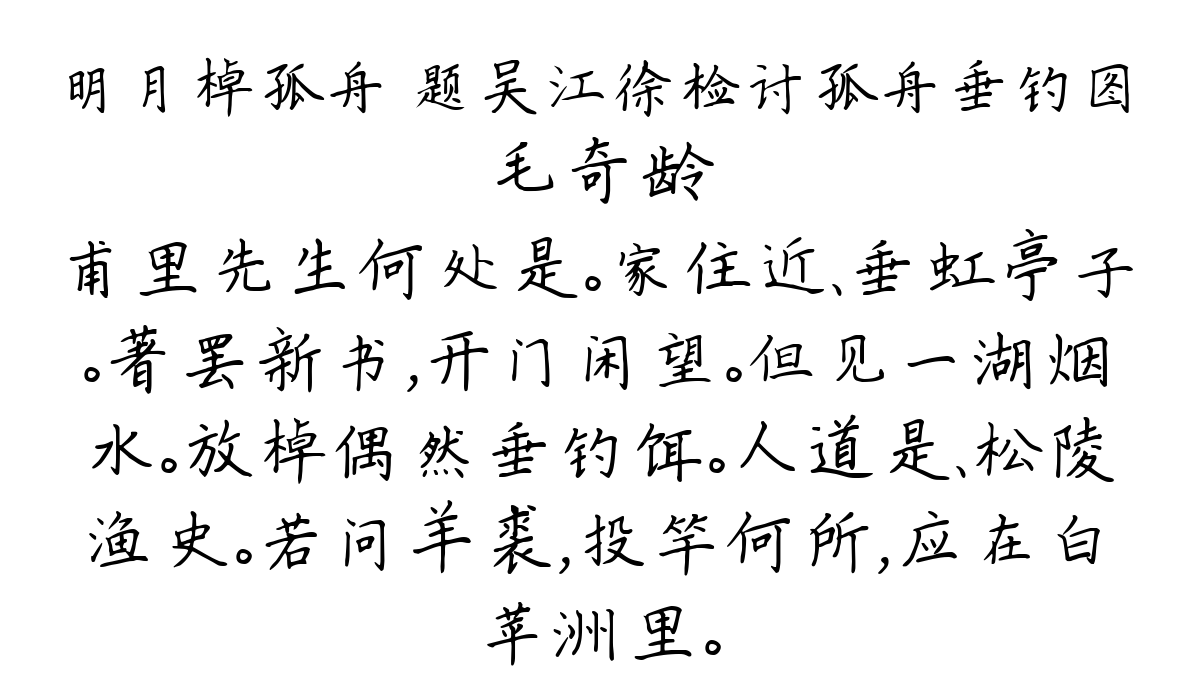 明月棹孤舟 题吴江徐检讨孤舟垂钓图
毛奇龄
甫里先生何处是。家住近、垂虹亭子
。著罢新书,开门闲望。但见一湖烟
水。放棹偶然垂钓饵。人道是、松陵
渔史。若问羊裘,投竿何所,应在白
苹洲里。